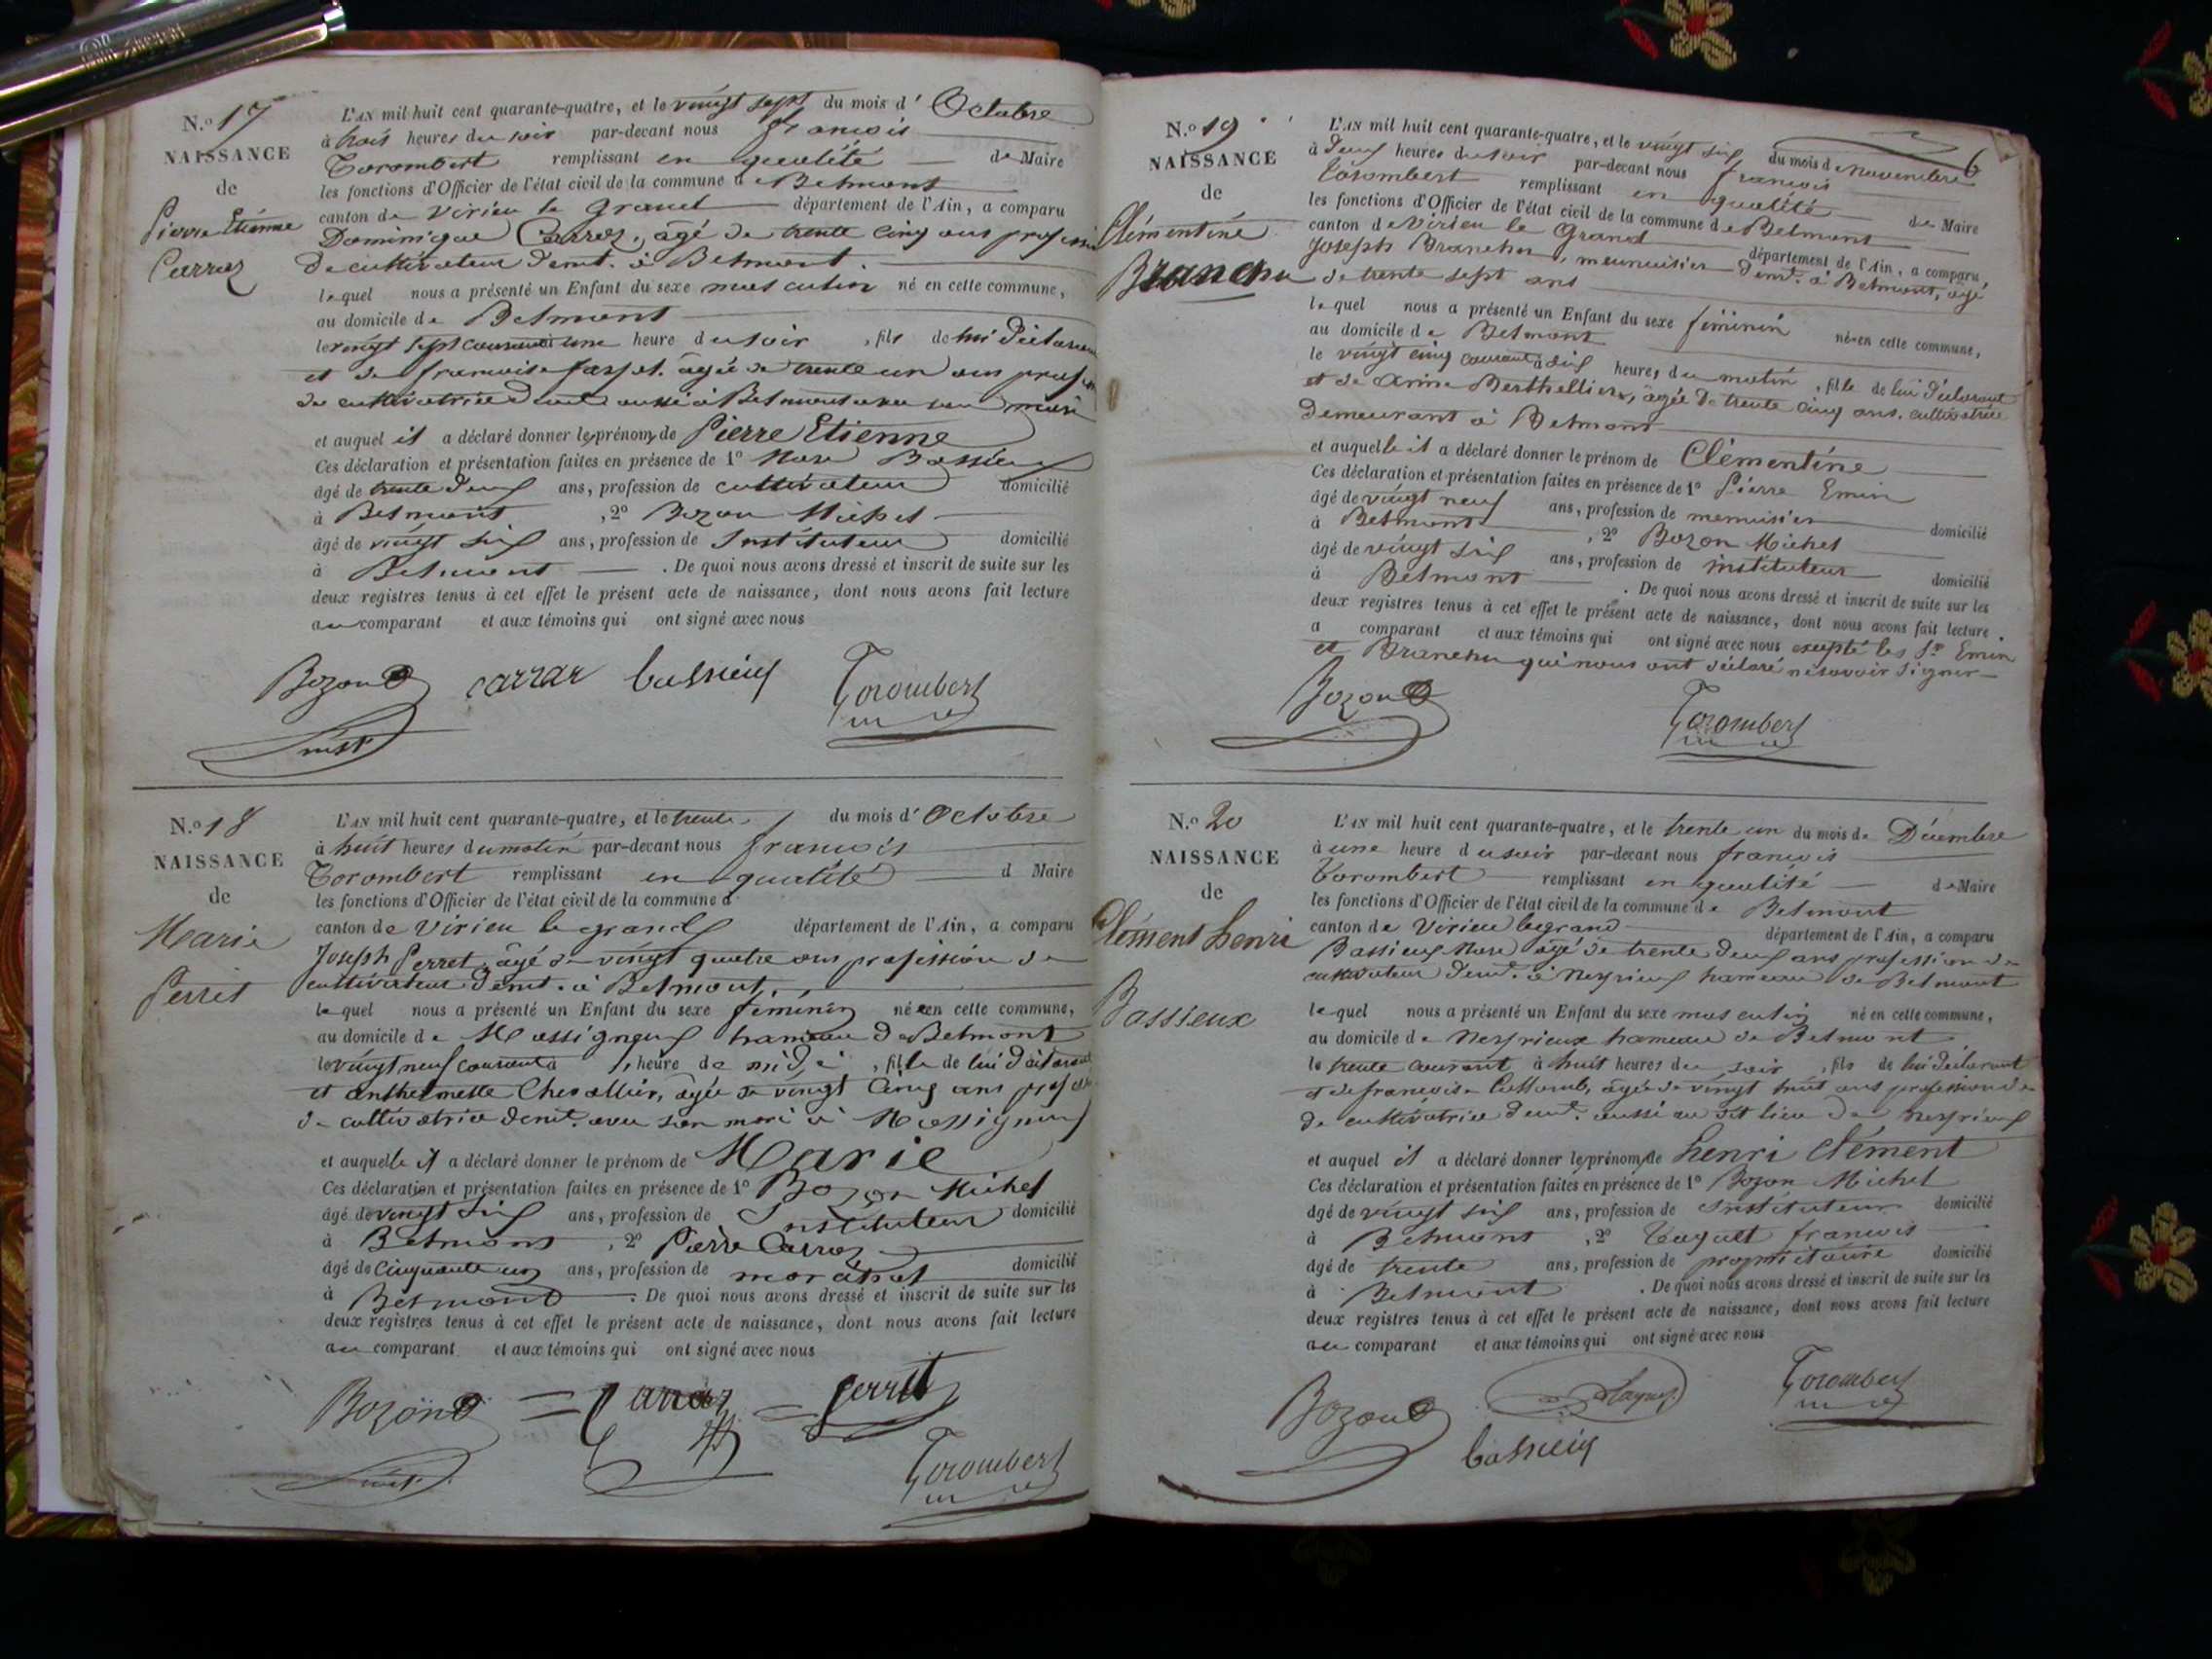 N.o 17
NAISSANCE
de
Pierre Etienne
Carraz
L'AN mil huit cent quarante-quatre, et le vingt sept du mois d' Octobre
à trois heures du soir par-devant nous françois
Torombert remplissant en qualité de Maire
les fonctions d'Officier de l'état civil de la commune de Belmont
canton de Virieu le Grand département de l'Ain, a comparu
Dominique Carraz, âgé de trente cinq ans profession
de cultivateur demt. à Belmont.
lequel nous a présenté un Enfant du sexe masculin né en cette commune,
au domicile de Belmont
le vingt sept courant à une heure du soir, fils de lui déclarant
et de francoise âgée de trente un ans profession
de cultivatrice demt aussi à Belmont avec son mari
et auquel il a déclaré donner les prénoms de Pierre Etienne
Ces déclaration et présentation faites en présence de 1o Marc Bassieux
âgé de trente deux ans, profession de cultivateur domicilié
à Belmont, 2o Bozon Michel
âgé de vingt six ans, profession de Instituteur domicilié
à Belmont. De quoi nous avons dressé et inscrit de suite sur les
deux registres tenus à cet effet le présent acte de naissance, dont nous avons fait lecture
au comparant et aux témoins qui ont signé avec nous
Bozon carrar bassieux Torombert
inst
N.o 18
NAISSANCE
de
Marie
Perret
L'AN mil huit cent quarante-quatre, et le trente du mois d' Octobre
à huit heures du matin par-devant nous francois
Torombert remplissant en qualité d Maire
les fonctions d'Officier de l'état civil de la commune d
canton de Virieu le grand département de l'Ain, a comparu
Joseph Perret, âgé de vingt quatre ans profession de
cultivateur demt. à Belmont.
lequel nous a présenté un Enfant du sexe féminin né en cette commune,
au domicile de Massigneux hameau de Belmont
le vingt neuf courant à heure de midi, fille de lui déclarant
et anthelmette Chevallier, âgée de vingt cinq ans profession
de cultivatrice demt. avec son mari à Massigneux
et auquelle il a déclaré donner le prénom de Marie
Ces déclaration et présentation faites en présence de 1o Bozon Michel
âgé de vingt six ans, profession de Instituteur domicilié
à Belmont, 2o Pierre Carraz
âgé de cinquante un ans, profession de maréchal domicilié
à Belmont. De quoi nous avons dressé et inscrit de suite sur les
deux registres tenus à cet effet le présent acte de naissance, dont nous avons fait lecture
au comparant et aux témoins qui ont signé avec nous
Bozon Carraz perret
inst Torombert
6
N.o 19
NAISSANCE
de
Clémentine
Branchu
L'AN mil huit cent quarante-quatre, et le vingt six du mois de Novembre
à deux heures du soir par-devant nous francois
Torombert remplissant en qualité de Maire
les fonctions d'Officier de l'état civil de la commune de Belmont
canton de Virieu le Grand département de l'Ain, a comparu,
Joseph Branchu, menuisier demt. à Belmont, âgé
de trente sept ans
lequel nous a présenté un Enfant du sexe féminin née en cette commune,
au domicile de Belmont
le vingt cinq courant à six heures du matin, fille de lui déclarant
et de Anne Berthellier, âgée de trente cinq ans, cultivatrice
demeurant à Belmont
et auquelle il a déclaré donner le prénom de Clémentine
Ces déclaration et présentation faites en présence de 1o Pierre Emin
âgé de vingt neuf ans, profession de menuisier domicilié
à Belmont, 2o Bozon Michel
âgé de vingt six ans, profession de instituteur domicilié
à Belmont. De quoi nous avons dressé et inscrit de suite sur les
deux registres tenus à cet effet le présent acte de naissance, dont nous avons fait lecture
a comparant et aux témoins qui ont signé avec nous excepté les Sr Emin
et Branchu qui nous ont déclaré ne savoir signer
Bozon Torombert
N.o 20
NAISSANCE
de
Clément henri
Bassieux
L'AN mil huit cent quarante-quatre, et le trente un du mois de Décembre
à une heure du soir par-devant nous francois
Torombert remplissant en qualité de Maire
les fonctions d'Officier de l'état civil de la commune de Belmont
canton de Virieu legrand département de l'Ain, a comparu
Bassieux Marc âgé de trente deux ans profession de
cultivateur demt. à Neyrieux hameau de Belmont
lequel nous a présenté un Enfant du sexe masculin né en cette commune,
au domicile de Neyrieux hameau de Belmont
le trente courant à huit heures du soir, fils de lui déclarant
et de francoise âgée de vingt huit ans profession de
de cultivatrice demt. aussi au dit lieu de Neyrieux
et auquel il a déclaré donner les prénoms de henri clément
Ces déclaration et présentation faites en présence de 1o Bozon Michel
âgé de vingt six ans, profession de Instituteur domicilié
à Belmont, 2o francois
âgé de trente ans, profession de propriétaire domicilié
à Belmont. De quoi nous avons dressé et inscrit de suite sur les
deux registres tenus à cet effet le présent acte de naissance, dont nous avons fait lecture
au comparant et aux témoins qui ont signé avec nous
Bozon Torombert
bassieux